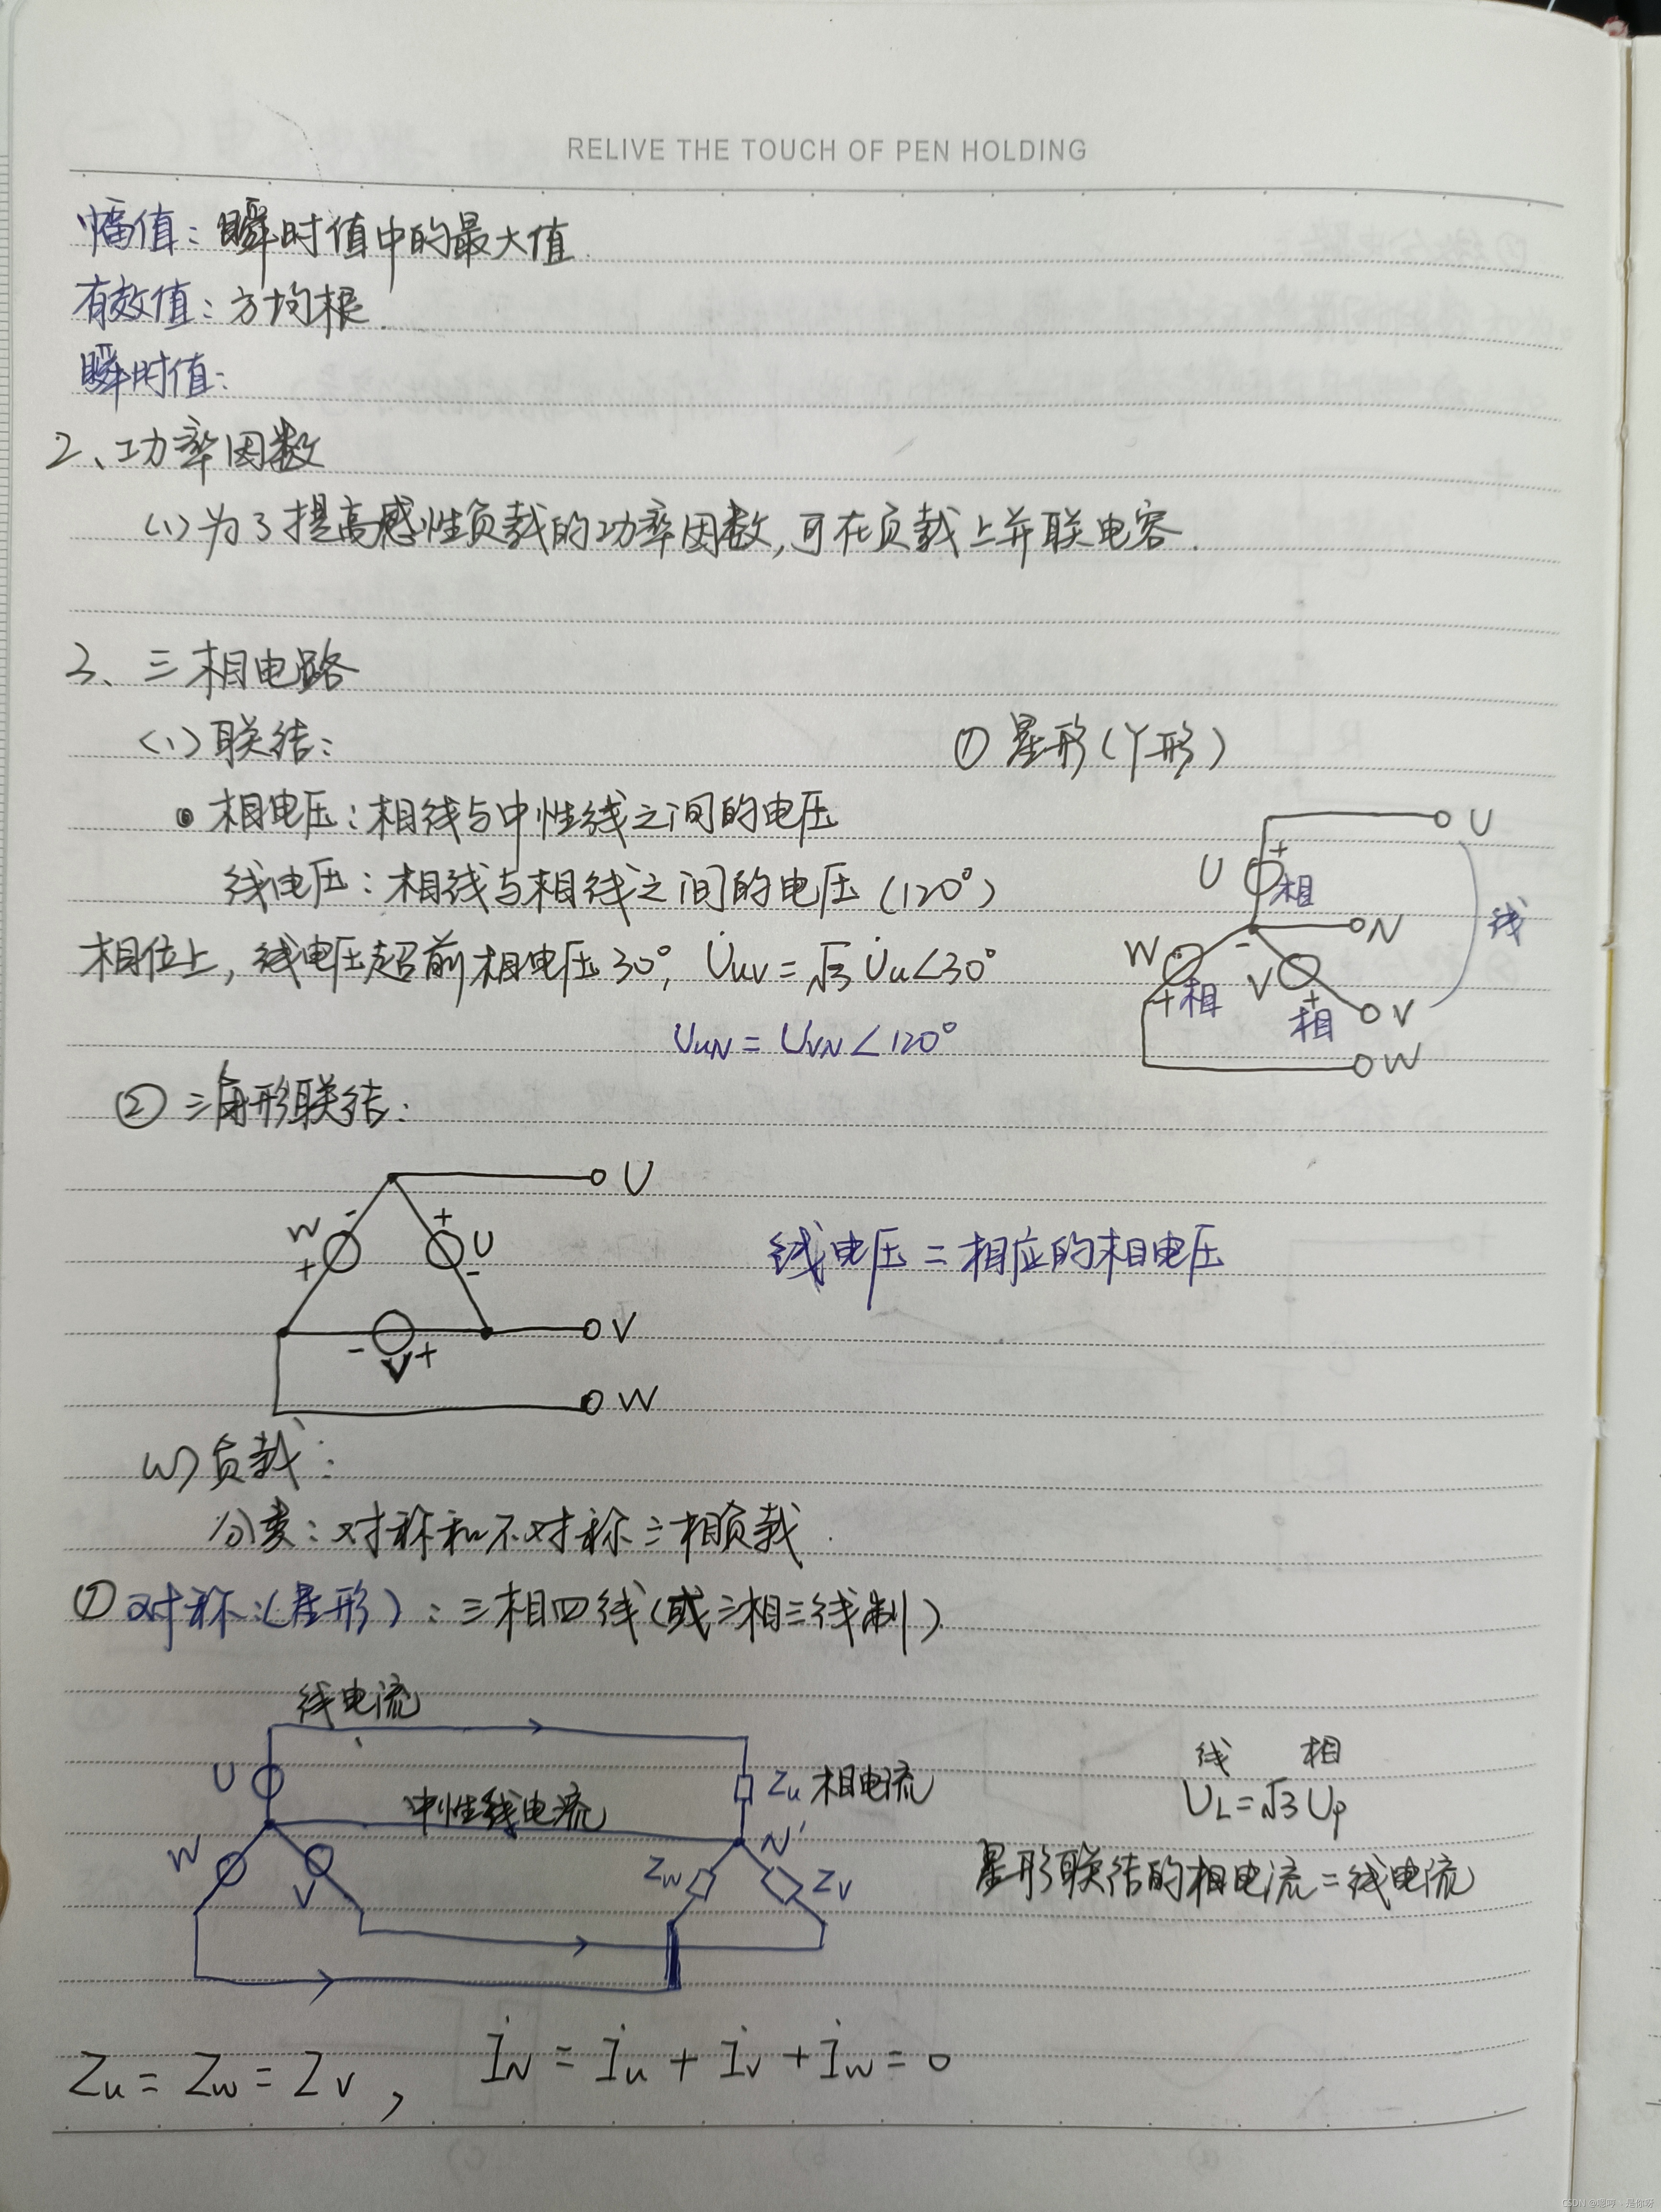 RELIVE THE TOUCH OF PEN HOLDING
幅值：瞬时值中的最大值.
有效值：方均根.
瞬时值：
2、功率因数
(1)为了提高感性负载的功率因数,可在负载上并联电容.
3、三相电路
(1)联结：
① 星形(丫形)
相电压：相线与中性线之间的电压
线电压：相线与相线之间的电压(120°)
相位上，线电压超前相电压30°, U̇uv=√3 U̇u∠30°
UuN = UVN∠120°
U
+
U 相
N
线
W
-
+ 相
V
+
相
V
W
② 三角形联结：
U
W - +
+ U
-
线电压 = 相应的相电压
V
- V +
W
负载：
分类：对称和不对称三相负载.
① 对称：(星形)：三相四线(或三相三线制)
线电流
U
中性线电流
Zu 相电流
N'
W
V
Zw
Zv
线 相
UL=√3 Up
星形联结的相电流=线电流
Zu = Zw = Zv , İN = İu + İv + İw = 0